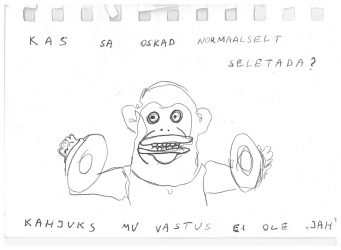 KAS SA OSKAD NORMAALSELT
SELETADA?
KAHJUKS MU VASTUS EI OLE „JAH"